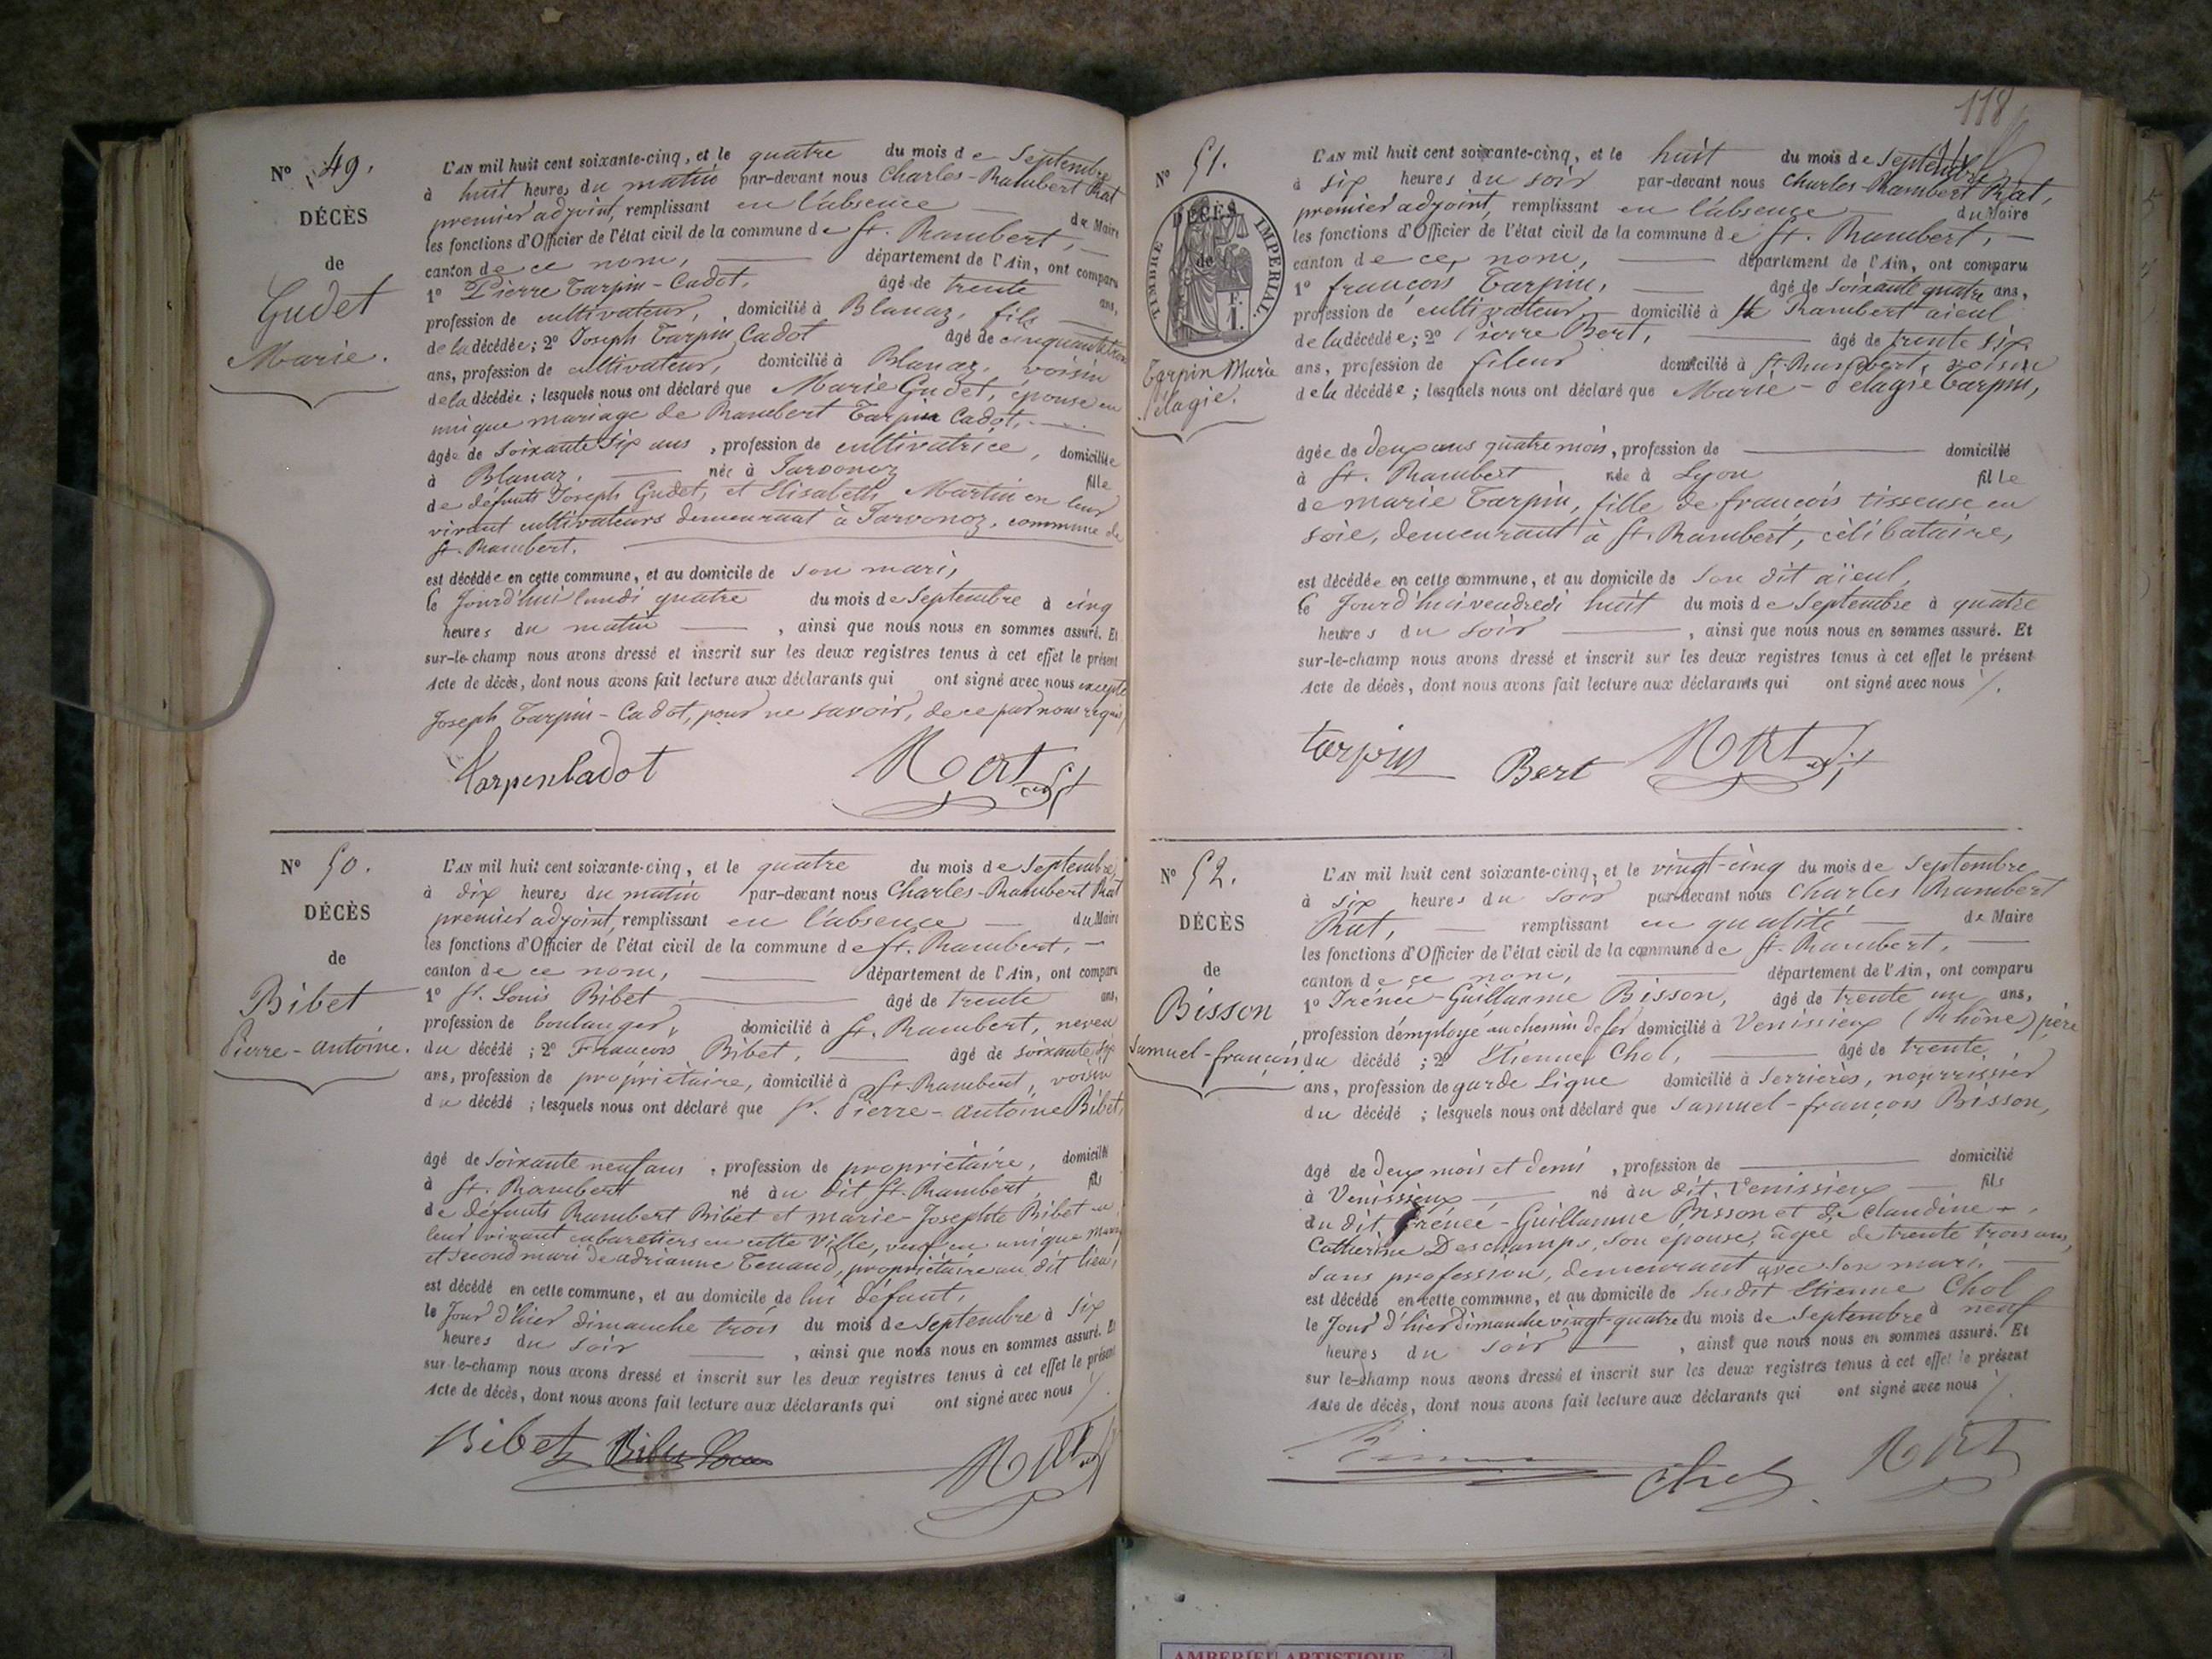 Nº 49.
DÉCÈS
de
Gudet
Marie.
L'AN mil huit cent soixante-cinq, et le quatre du mois de Septembre
à huit heures du matin par-devant nous Charles-Rambert Rat
premier adjoint, remplissant en l'absence du Maire
les fonctions d'Officier de l'état civil de la commune de St. Rambert,
canton de ce nom, département de l'Ain, ont comparu
1º Pierre Tarpin-Cadot, âgé de trente ans,
profession de cultivateur, domicilié à Blanaz, fils
de la décédée; 2º Joseph Tarpin Cadot âgé de cinquante trois
ans, profession de cultivateur, domicilié à Blanaz, voisin
de la décédée; lesquels nous ont déclaré que Marie Gudet, épouse en
unique mariage de Rambert Tarpin Cadot,
âgée de soixante six ans, profession de cultivatrice, domiciliée
à Blanaz, née à Javornoz fille
de défunts Joseph Gudet, et Elisabeth Martin en leur
vivant cultivateurs demeurant à Javornoz, commune de
St. Rambert.
est décédée en cette commune, et au domicile de son mari,
le jourd'hui lundi quatre du mois de Septembre à cinq
heures du matin, ainsi que nous nous en sommes assuré. Et
sur-le-champ nous avons dressé et inscrit sur les deux registres tenus à cet effet le présent
Acte de décès, dont nous avons fait lecture aux déclarants qui ont signé avec nous excepté
Joseph Tarpin-Cadot, pour ne savoir, de ce par nous requis
Tarpin Cadot
Nº 50.
DÉCÈS
de
Bibet
Pierre-antoine.
L'AN mil huit cent soixante-cinq, et le quatre du mois de Septembre
à dix heures du matin par-devant nous Charles-Rambert Rat
premier adjoint, remplissant en l'absence du Maire
les fonctions d'Officier de l'état civil de la commune de St. Rambert,
canton de ce nom, département de l'Ain, ont comparu
1º Sr. Louis Bibet âgé de trente ans,
profession de boulanger, domicilié à St. Rambert, neveu
du décédé; 2º François Bibet, âgé de soixante six
ans, profession de propriétaire, domicilié à St. Rambert, voisin
du décédé; lesquels nous ont déclaré que Sr. Pierre-antoine Bibet,
âgé de soixante neuf ans, profession de propriétaire, domicilié
à St. Rambert né au dit St. Rambert, fils
de défunts Rambert Bibet et marie-Josephte Bibet en
leur vivant cabaretiers en cette Ville, veuf en unique
et second mari de adrianne Tenand, propriétaire au dit lieu,
est décédé en cette commune, et au domicile de lui défunt,
le Jour d'hier dimanche trois du mois de Septembre à six
heures du soir, ainsi que nous nous en sommes assuré. Et
sur-le-champ nous avons dressé et inscrit sur les deux registres tenus à cet effet le présent
Acte de décès, dont nous avons fait lecture aux déclarants qui ont signé avec nous
Bibet
118
Nº 51.
DÉCÈS
de
TIMBRE IMPERIAL.
Tarpin Marie
Pélagie.
L'AN mil huit cent soixante-cinq, et le huit du mois de Septembre
à six heures du soir par-devant nous Charles-Rambert Rat,
premier adjoint, remplissant en l'absence du Maire
les fonctions d'Officier de l'état civil de la commune de St. Rambert,
canton de ce nom, département de l'Ain, ont comparu
1º françois Tarpin, âgé de soixante quatre ans,
profession de cultivateur domicilié à St Rambert aïeul
de la décédée; 2º Pierre Bert, âgé de trente six
ans, profession de fileur domicilié à St. Rambert, voisin
de la décédée; lesquels nous ont déclaré que Marie-Pélagie Tarpin,
âgée de deux ans quatre mois, profession de domiciliée
à St. Rambert née à Lyon fille
de marie Tarpin, fille de françois tisseuse en
soie, demeurant à St. Rambert, célibataire,
est décédée en cette commune, et au domicile de son dit aïeul,
le Jourd'hui vendredi huit du mois de Septembre à quatre
heures du soir, ainsi que nous nous en sommes assuré. Et
sur-le-champ nous avons dressé et inscrit sur les deux registres tenus à cet effet le présent
Acte de décès, dont nous avons fait lecture aux déclarants qui ont signé avec nous
tarpin Bert
Nº 52.
DÉCÈS
de
Bisson
Samuel-françois
L'AN mil huit cent soixante-cinq, et le vingt-cinq du mois de Septembre
à six heures du soir par-devant nous Charles Rambert
Rat, remplissant en qualité de Maire
les fonctions d'Officier de l'état civil de la commune de St. Rambert,
canton de ce nom, département de l'Ain, ont comparu
1º Irénée-Guillaume Bisson, âgé de trente un ans,
profession d'employé au chemin de fer domicilié à Venissieux (Rhône) père
du décédé; 2º Etienne Chol, âgé de trente
ans, profession de garde ligne domicilié à Serrières, nourrissier
du décédé; lesquels nous ont déclaré que Samuel-françois Bisson,
âgé de deux mois et demi, profession de domicilié
à Venissieux né au dit Venissieux fils
du dit Irénée-Guillaume Bisson et de claudine
Catherine Deschamps, son épouse, âgée de trente trois ans,
sans profession, demeurant avec son mari,
est décédé en cette commune, et au domicile de susdit Etienne Chol
le Jour d'hier dimanche vingt-quatre du mois de Septembre à neuf
heures du soir, ainsi que nous nous en sommes assuré. Et
sur-le-champ nous avons dressé et inscrit sur les deux registres tenus à cet effet le présent
Acte de décès, dont nous avons fait lecture aux déclarants qui ont signé avec nous
Chol
AMBERIEU ARTISTIQUE